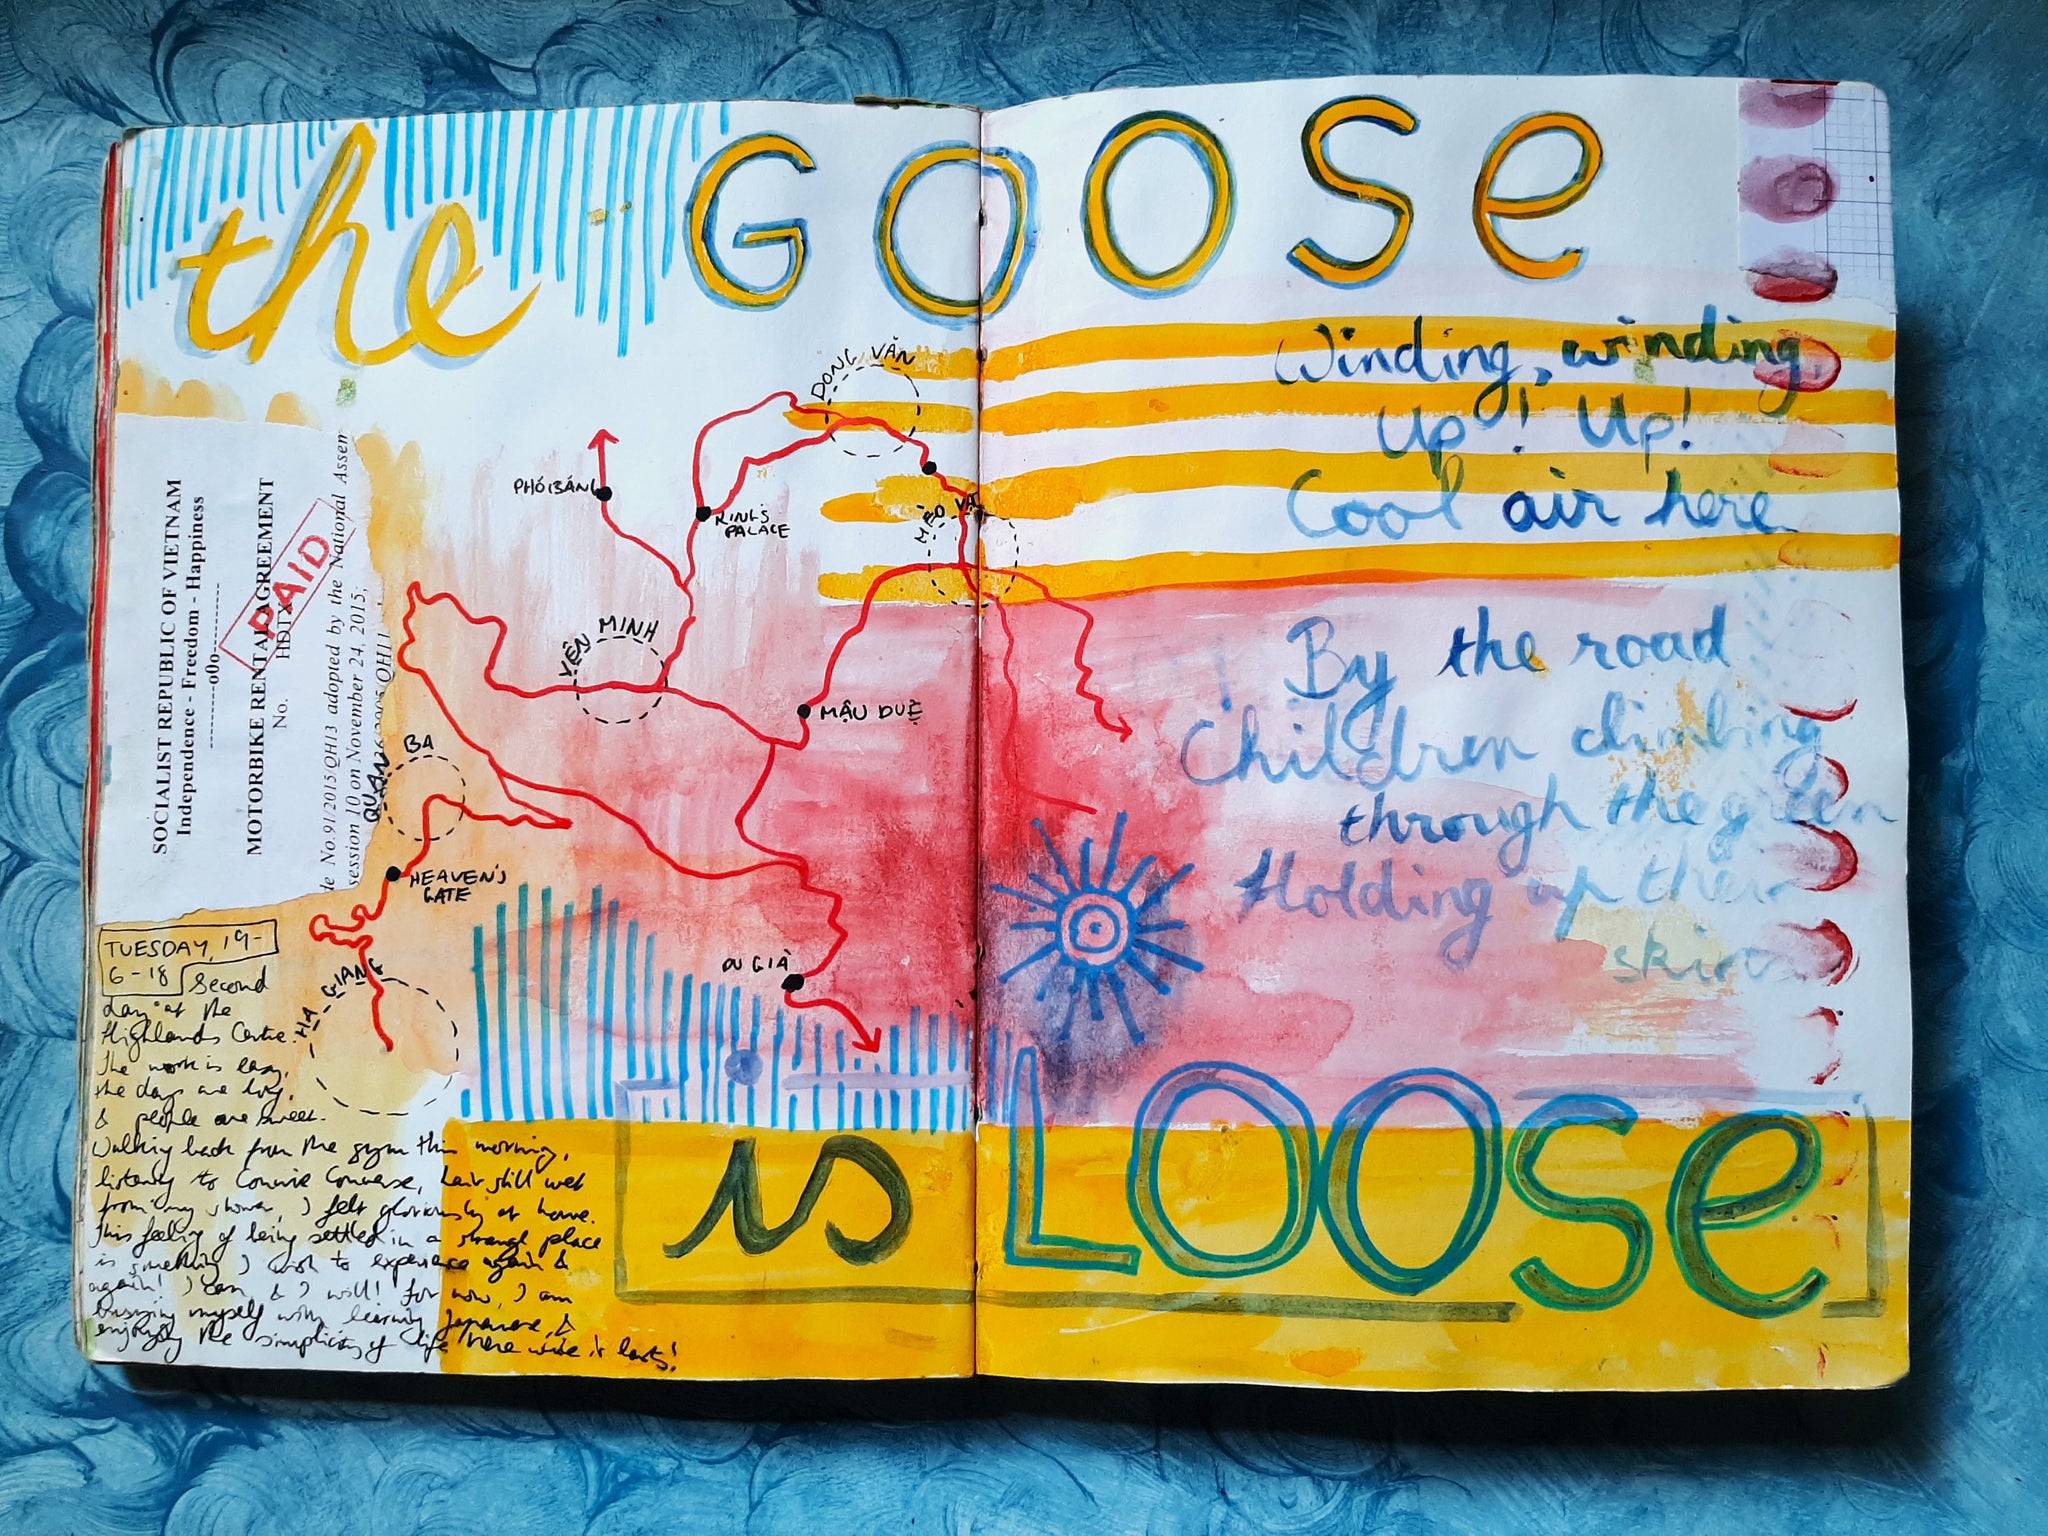 the GOOSE
Winding, winding,
Up! Up!
Cool air here
By the road
Children climbing
through the green
Holding up their
skirts
is LOOSE
ĐỒNG VĂN
PHÓ BẢNG
KING'S
PALACE
MÈO VẠC
YÊN MINH
MẬU DUỆ
QUẢN BẠ
HEAVEN'S
GATE
DU GIÀ
HÀ GIANG
SOCIALIST REPUBLIC OF VIETNAM
Independence - Freedom - Happiness
----------o0o----------
MOTORBIKE RENTAL AGREEMENT
No. HDTX
PAID
de No.91/2015/QH13 adopted by the National Assem
session 10 on November 24, 2015,
TUESDAY, 19-
6-18 Second
day at the
Highlands Centre.
The work is easy,
the days are long,
& people are sweet.
Walking back from the gym this morning,
listening to Connie Converse, hair still wet
from my shower, I felt gloriously at home.
This feeling of being settled in a strange place
is something I wish to experience again &
again! I can, & I will! For now, I am
busying myself with learning Japanese, &
enjoying the simplicity of life here while it lasts!